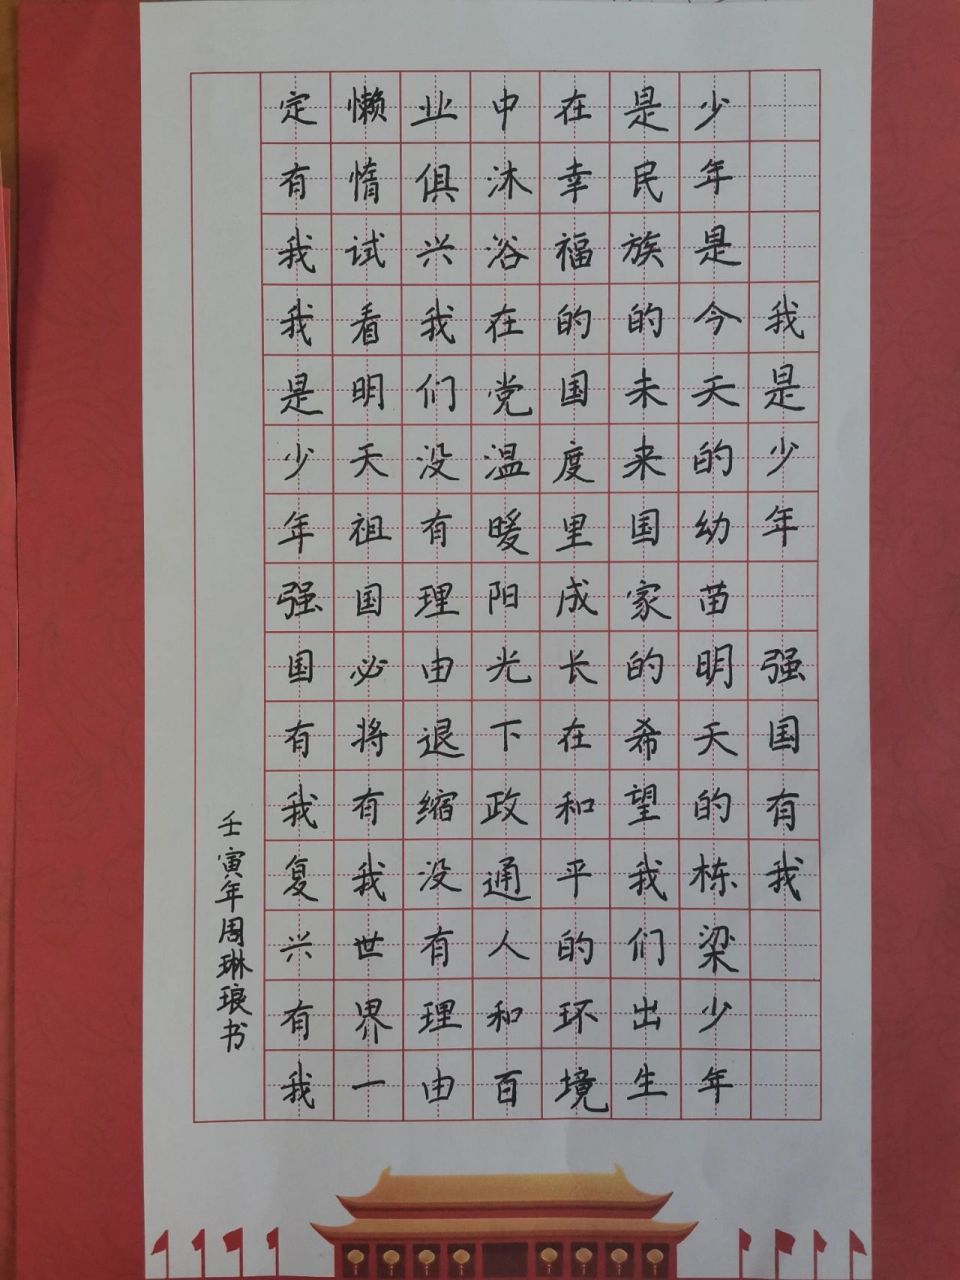 我是少年 强国有我
少年是今天的幼苗明天的栋梁少年
是民族的未来国家的希望我们出生
在幸福的国度里成长在和平的环境
中沐浴在党温暖阳光下政通人和百
业俱兴我们没有理由退缩没有理由
懒惰试看明天祖国必将有我世界一
定有我我是少年强国有我复兴有我
壬寅年周琳琅书